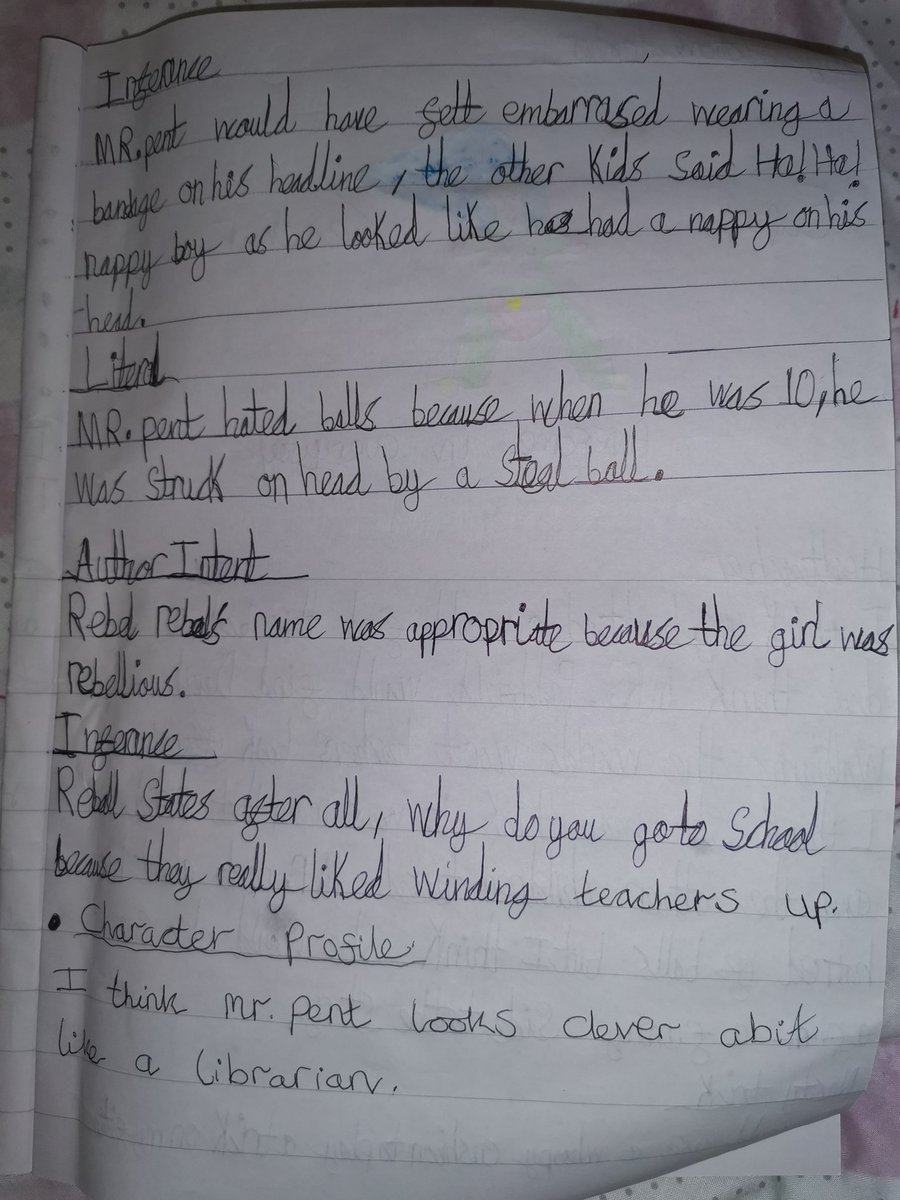 Inferance
MR.pent would have felt embarrased wearing a
bandage on his headline, the other Kids said Ha! Ha!
nappy boy as he looked like had a nappy on his
head.
Literal
MR. pent hated balls because when he was 10, he
was struck on head by a steal ball.
Author Intent
Rebel rebels name was appropriate because the girl was
rebellious.
Inferance
Rebell States after all, why do you go to School
because they really liked winding teachers up.
• Character Profile
I think mr. pent looks clever abit
like a librarian.